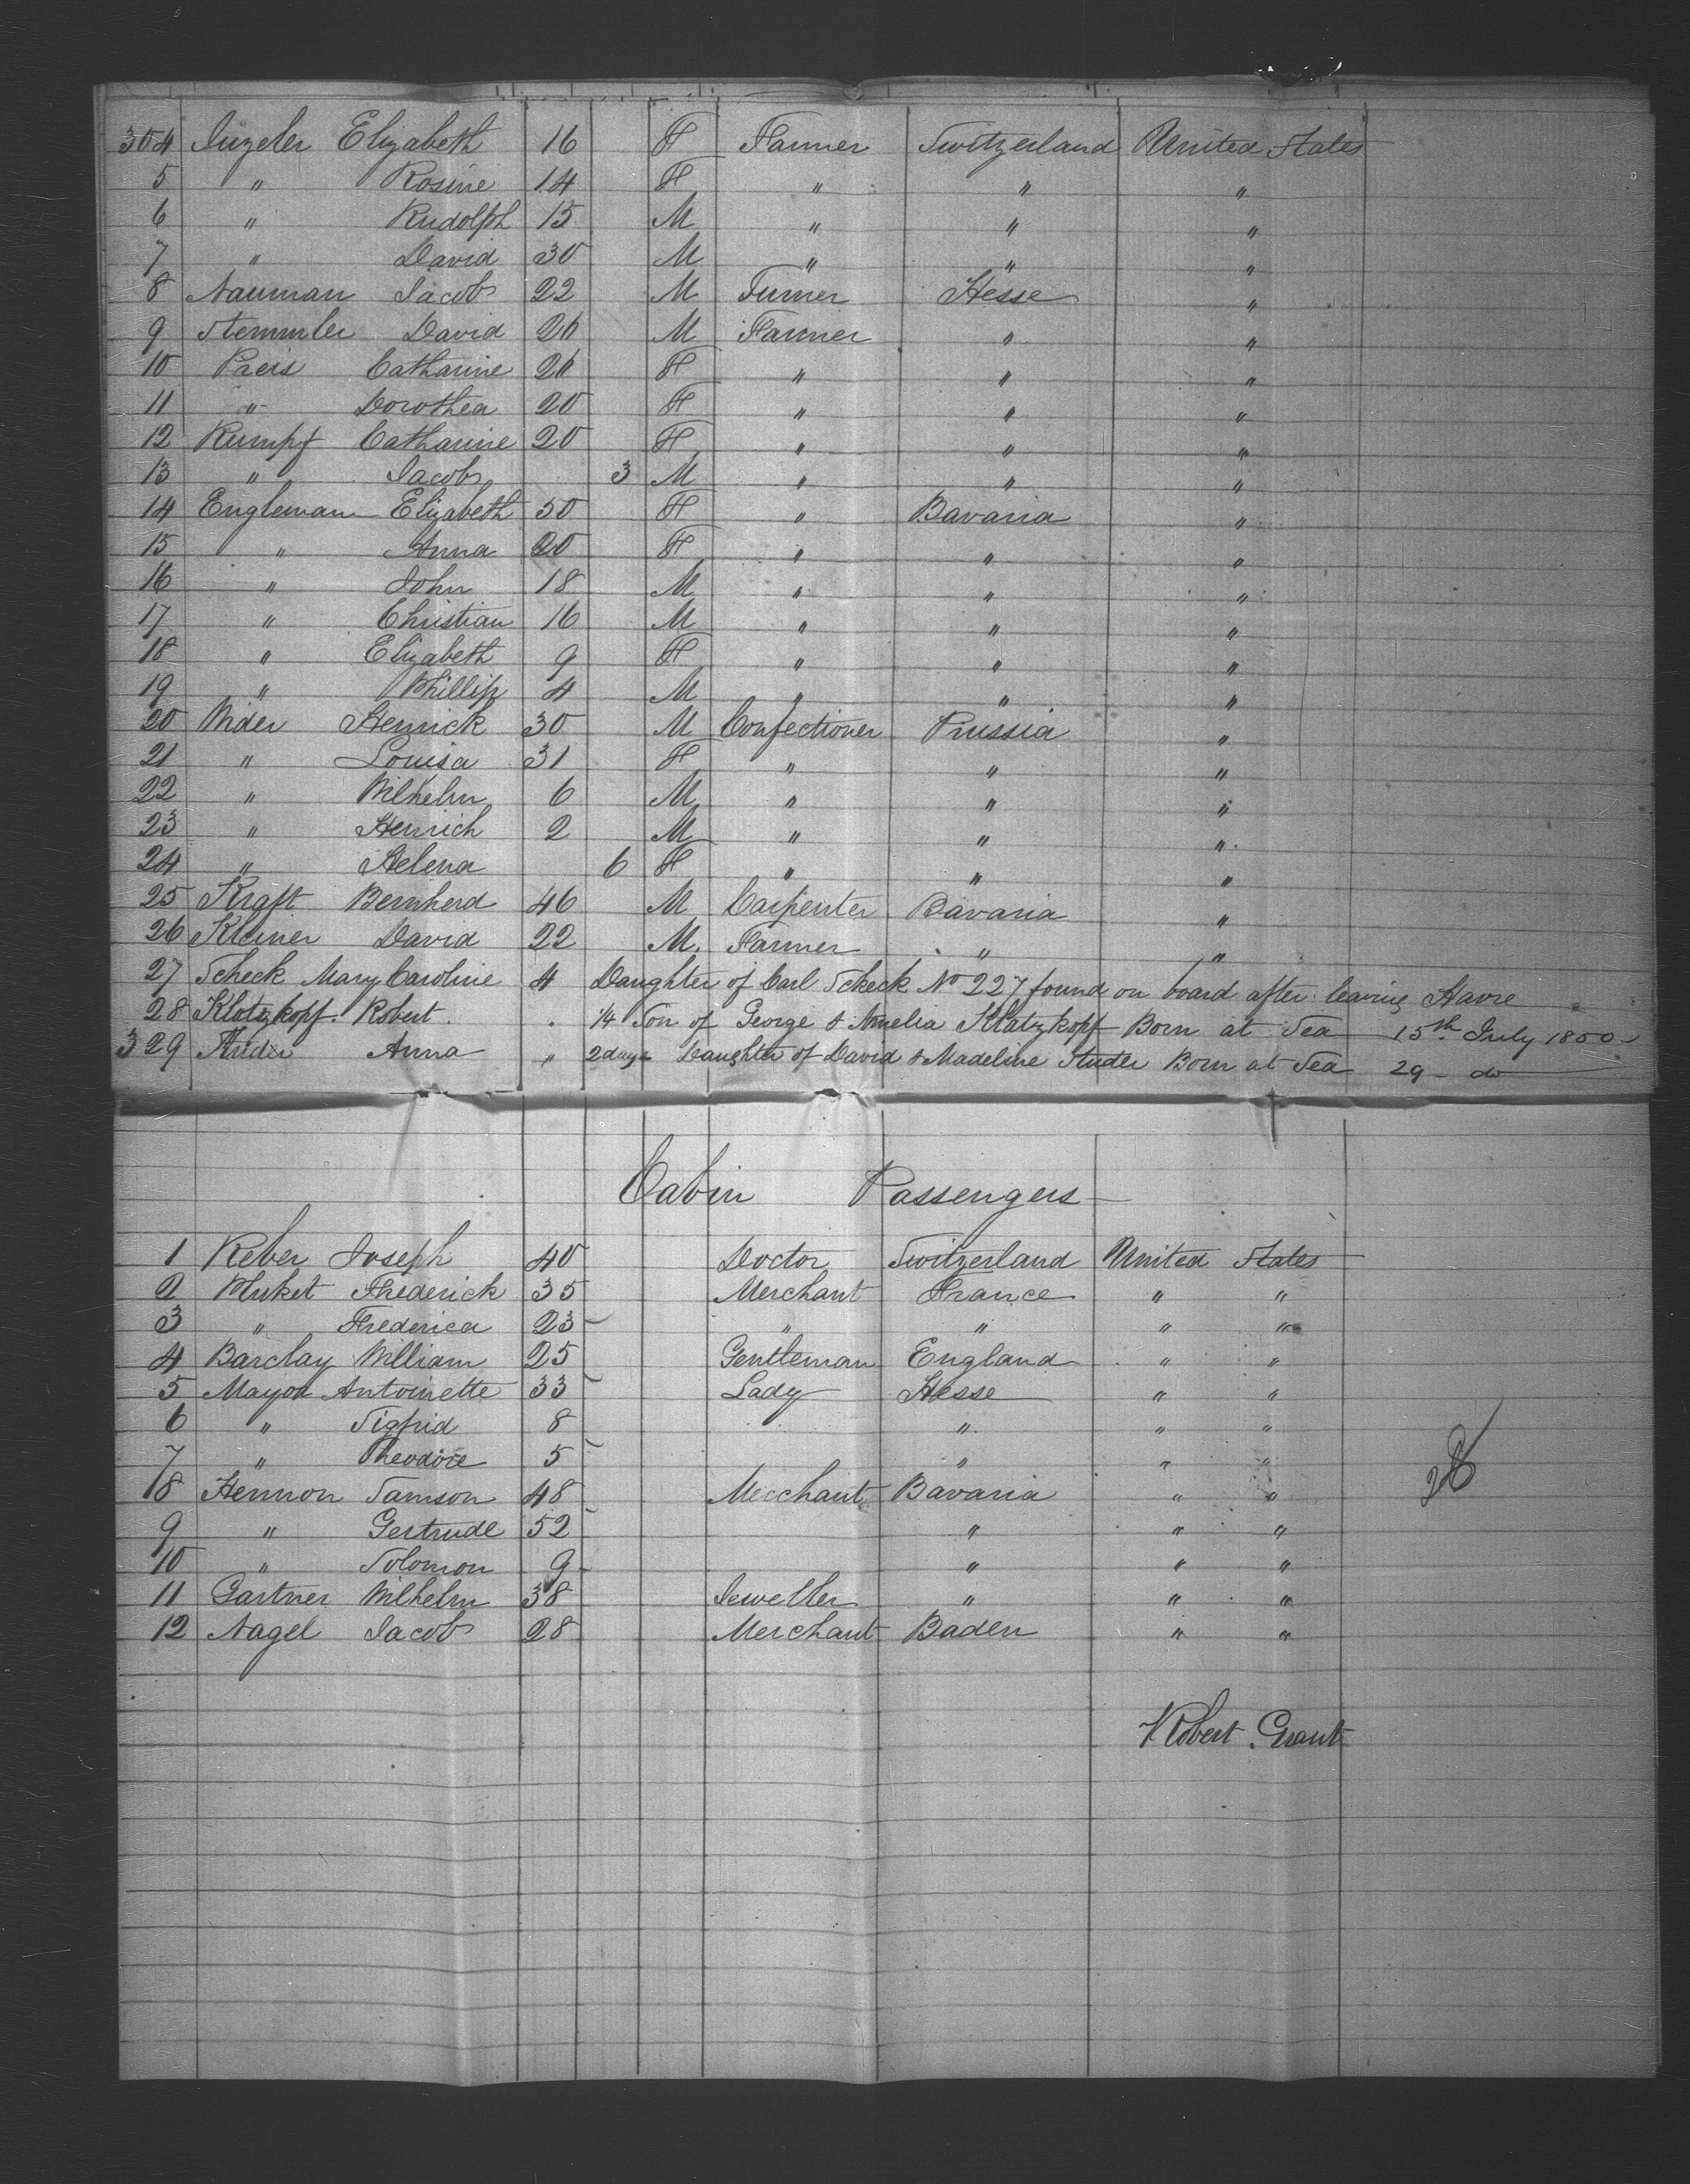 304 Inzeler Elizabeth 16 F Farmer Switzerland United States
5 " Rosine 14 F " " "
6 " Rudolph 15 M " " "
7 " David 30 M " " "
8 Nauman Jacob 22 M Turner Hesse "
9 Stemmler David 26 M Farmer " "
10 Preis Catharine 26 F " " "
11 " Dorothea 20 F " " "
12 Rumpf Catharine 20 F " " "
13 " Jacob 3 M " " "
14 Engleman Elizabeth 50 F " Bavaria "
15 " Anna 20 F " " "
16 " John 18 M " " "
17 " Christian 16 M " " "
18 " Elizabeth 9 F " " "
19 " Phillip 4 M " " "
20 Wider Henrick 30 M Confectioner Prussia "
21 " Louisa 31 F " " "
22 " Wilhelm 6 M " " "
23 " Henrich 2 M " " "
24 " Helena 6 F " " "
25 Kraft Bernherd 46 M Carpenter Bavaria "
26 Kleiner David 22 M. Farmer " "
27 Scheck Mary Caroline 4 Daughter of Carl Scheck No 227 found on board after leaving Havre
28 Klotzkopf. Robert . . 14 Son of George & Amelia Klotzkopf Born at Sea 15th July 1850
329 Studer Anna " 2 days Daughter of David & Madeline Studer Born at Sea 29 - do
Cabin Passengers
1 Reber Joseph 40 Doctor Switzerland United States
2 Frederick 35 Merchant France " "
3 " Frederica 23 " " " "
4 Barclay William 25 Gentleman England " "
5 Mayor Antoinette 33 Lady Hesse " "
6 " Sigfrid 8 " " "
7 " Theodore 5 " " "
8 Hermon Samson 48 Merchant Bavaria " "
9 " Gertrude 52 " " "
10 " Solomon 9 " " "
11 Gartner Wilhelm 38 Jeweller " " "
12 Nagel Jacob 28 Merchant Baden " "
Robert Grant